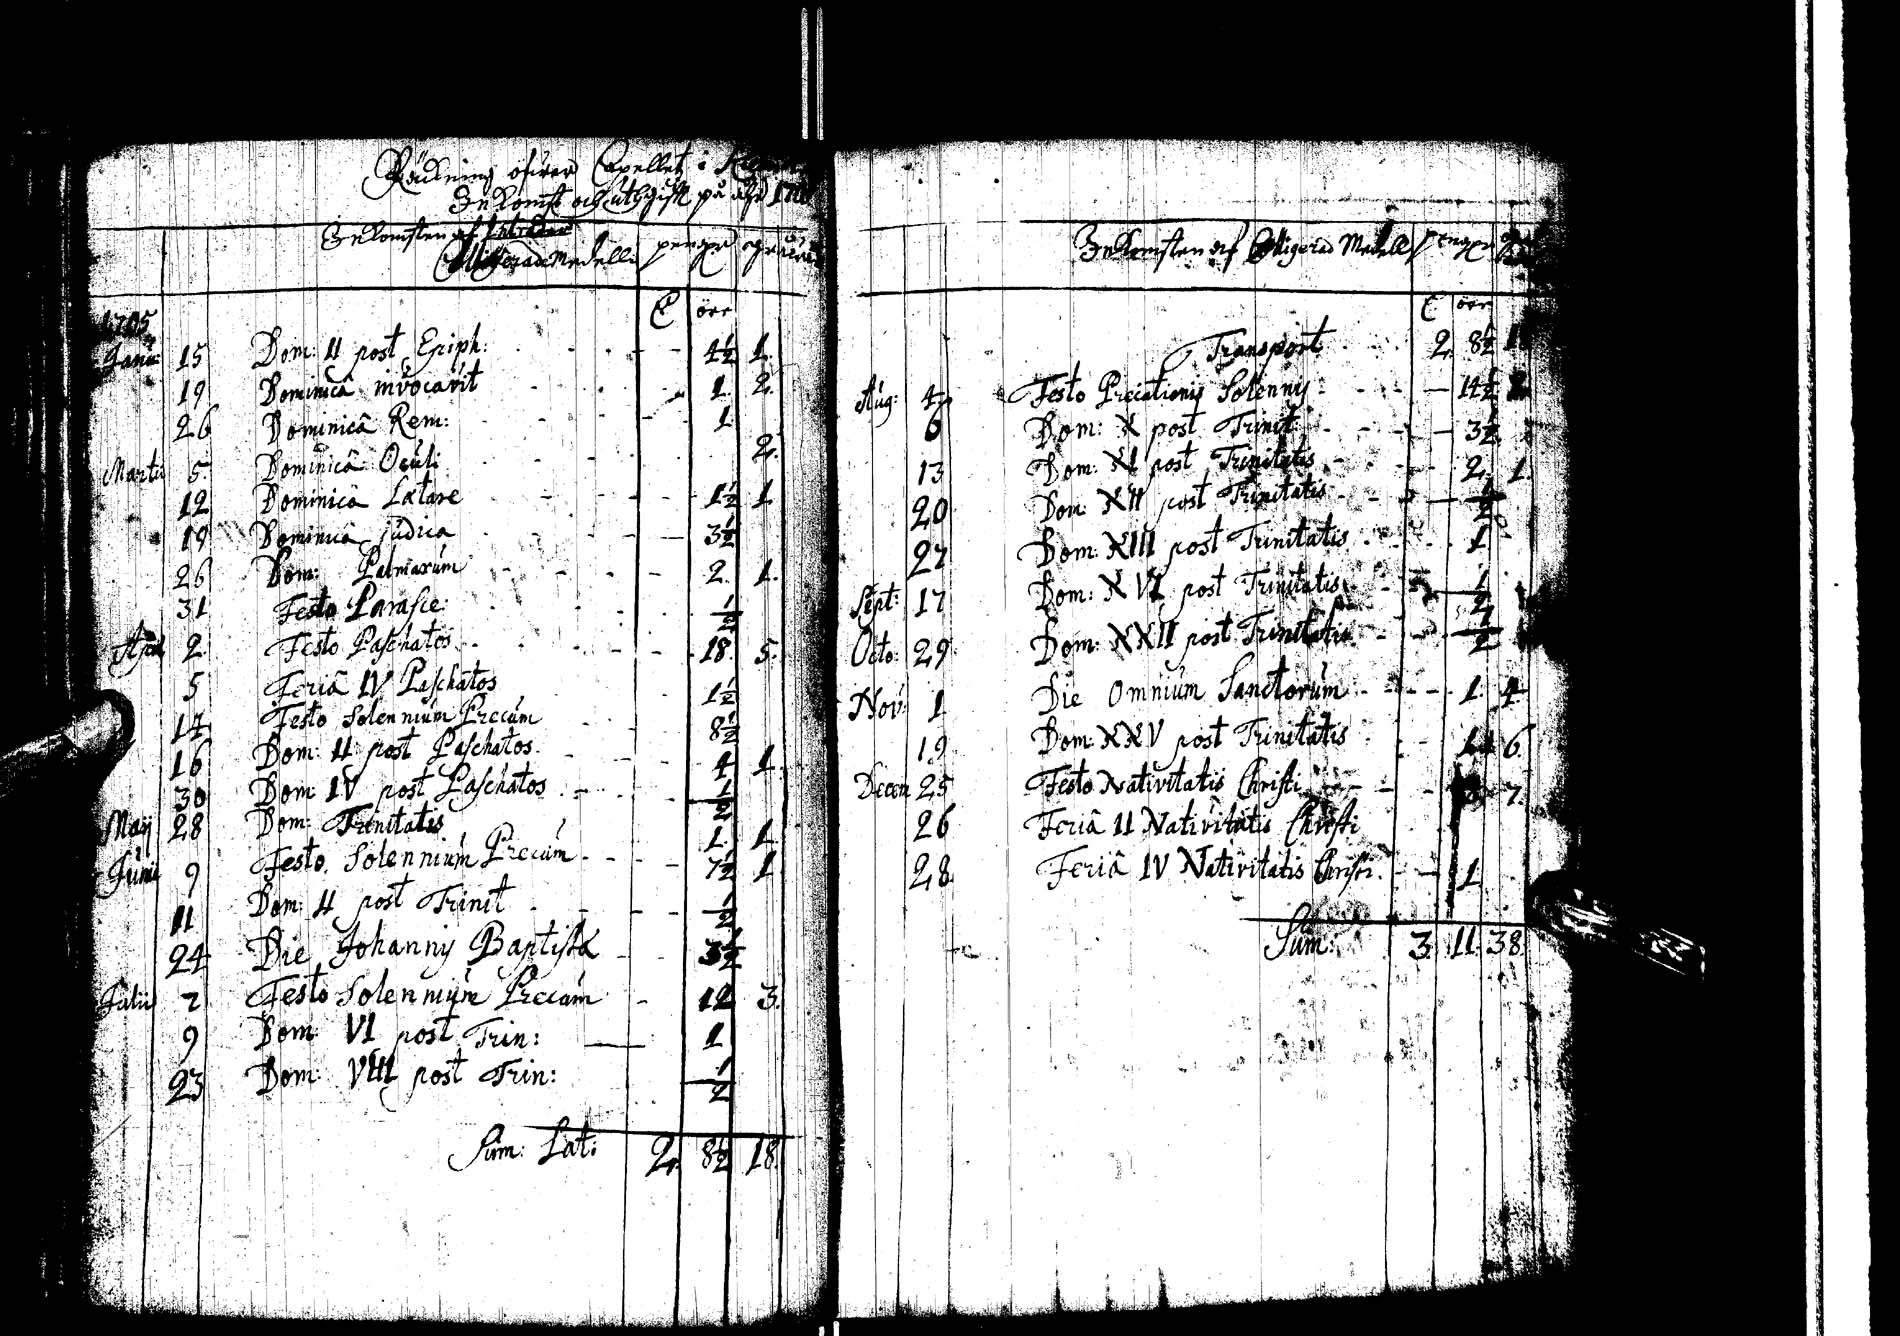 Räckning öfwer Capellet i
Inkomst och Uthgift på åhr
Inkomsten af
Colligerade Medell penger
D örr
1705
Janu: 15 Dom: II post Epiph: 4½ 1.
19 Dominicâ invocavit 1. 2.
26 Dominicâ Rem: 1
Martii 5. Dominicâ Oculi 2.
12 Dominicâ Lætare 1½ 1
19 Dominicâ judica 3½
26 Dom: Palmarum 2. 1.
31 Festo Parasce: ½
Apr 2 Festo Paschatos 18. 5.
5 Feriâ IV Paschatos 1½
14 Festo Solennium Precum 8½
16 Dom: II post Paschatos 4 1
30 Dom IV post Paschatos ½
Maij 28 Dom: Trinitatis 1. 1.
Junii 9 Festo Solennium Precum 7½ 1
11 Dom: II post Trinit ½
24 Die Johannis Baptistæ 3½
Julii 2 Festo Solennium Precum 12 3.
9 Dom: VI post Trin: 1
23 Dom: VIII post Trin: ½
Sum: Lat: 2. 8½ 18.
Inkomsten af Colligerad Medell penger
D örr
Transport 2. 8½
Aug: 4 Festo Precationis Solenny 14½
6 Dom: X post Trinit: 3½
13 Dom: XI post Trinitatis 2. 1.
20 Dom: XII post Trinitatis ½
27 Dom: XIII post Trinitatis 1
Sept: 17 Dom: XVI post Trinitatis ½
Octo: 29 Dom: XXII post Trinitatis ½
Nov: 1 Die Omnium Sanctorum 1. 4
19 Dom: XXV post Trinitatis 6.
Decem 25 Festo Nativitatis Christi 7.
26 Feriâ II Nativitatis Christi
28 Feriâ IV Nativitatis Christi. 1
Sum: 3. 11. 38.